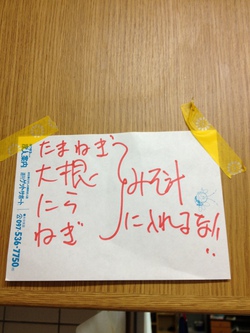 たまねぎ
大根
にら
ねぎ
みそ汁
に入れるな!!
097 536-7750